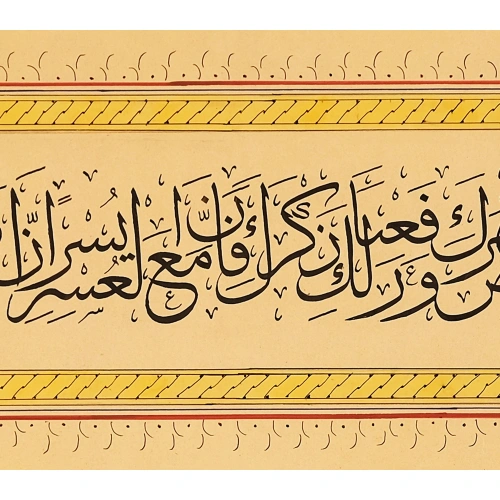 ورفعنا لك ذكرك فان مع العسر يسرا ان